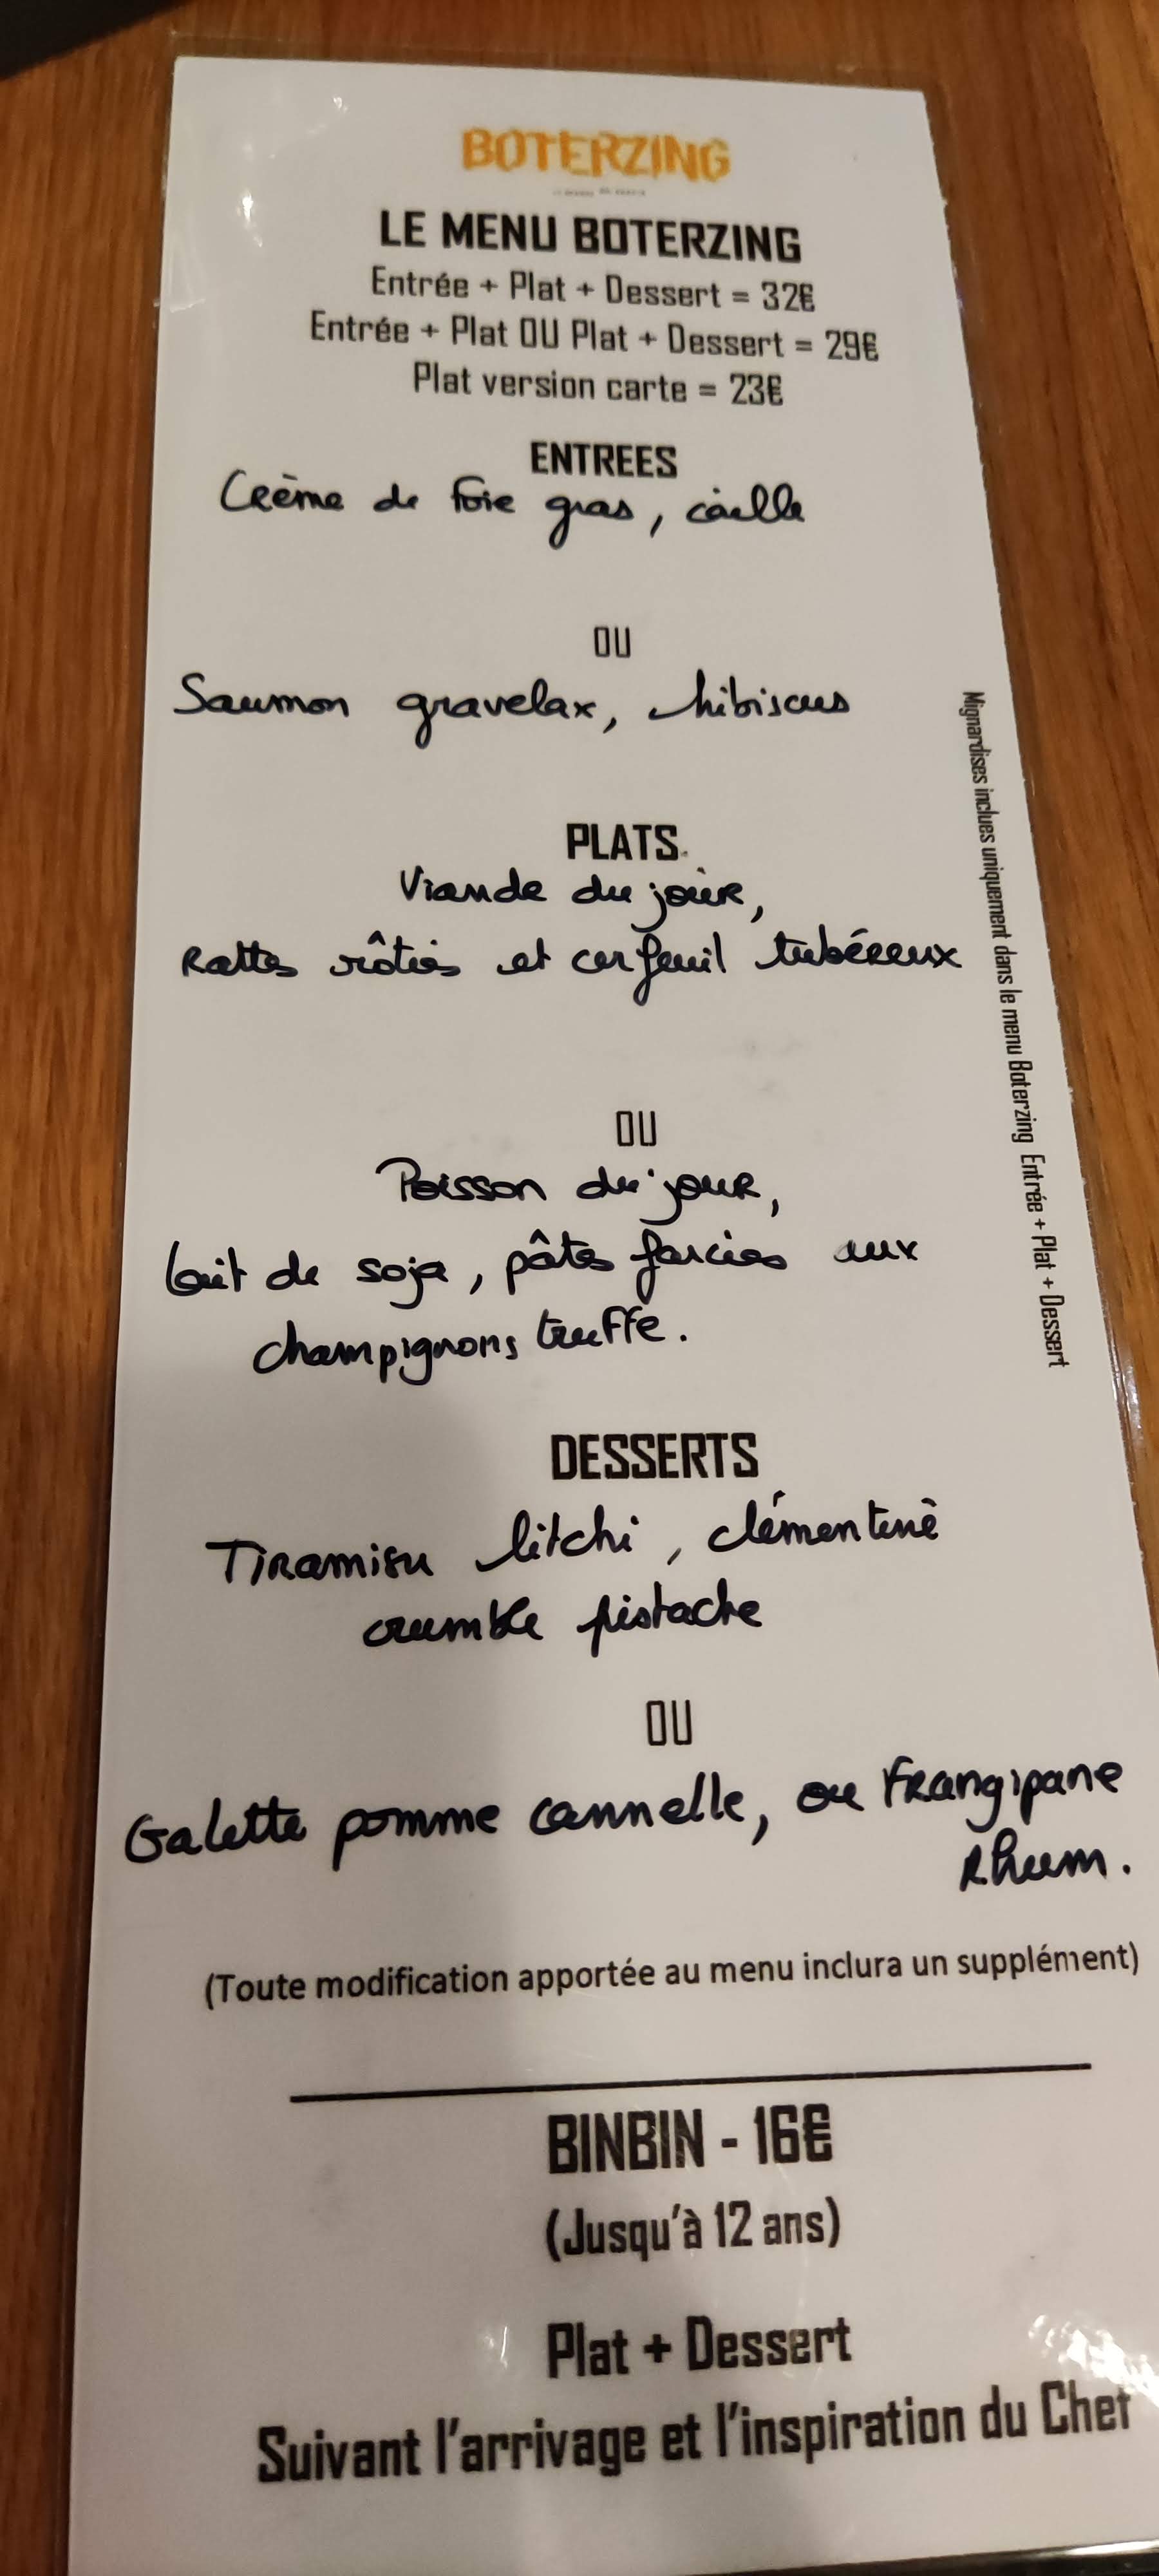 BOTERZING
LE MENU BOTERZING
Entrée + Plat + Dessert = 32€
Entrée + Plat OU Plat + Dessert = 29€
Plat version carte = 23€
ENTREES
Crème de foie gras, caille
OU
Saumon gravelax, hibiscus
PLATS
Viande du jour,
Rattes rôties et cerfeuil tubéreux
OU
Poisson du jour,
lait de soja, pâtes farcies aux
champignons truffe.
DESSERTS
Tiramisu litchi, clémentine
crumble pistache
OU
Galette pomme cannelle, ou Frangipane
Rhum.
(Toute modification apportée au menu inclura un supplément)
BINBIN - 16€
(Jusqu'à 12 ans)
Plat + Dessert
Suivant l'arrivage et l'inspiration du Chef
Mignardises inclues uniquement dans le menu Boterzing Entrée + Plat + Dessert